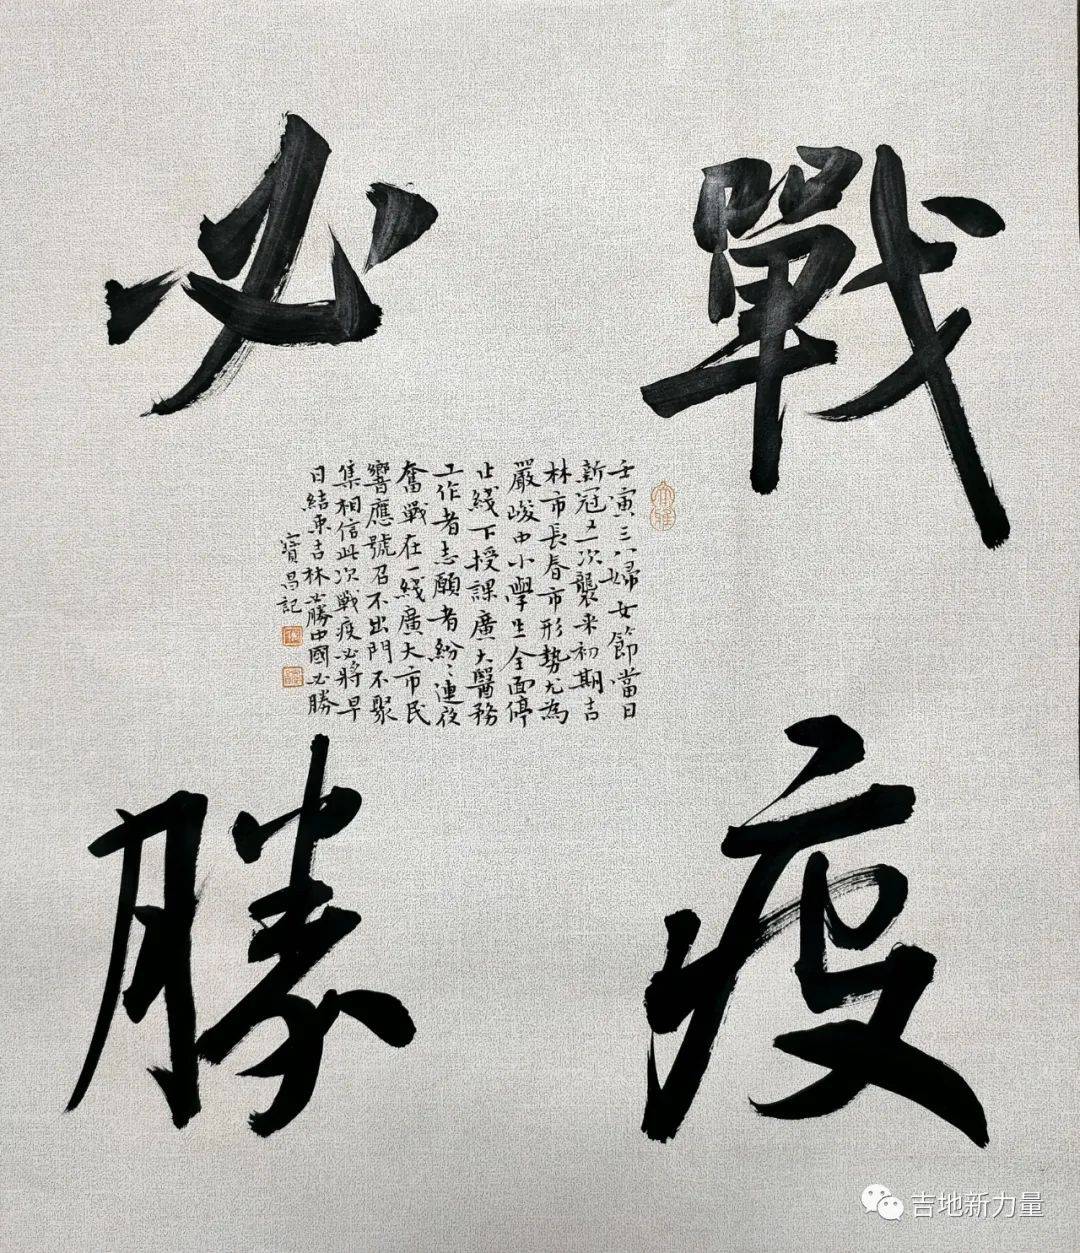 戰疫
必勝
壬寅三八婦女節噹日
新冠又一次襲来初期吉
林市長春市形势尤為
嚴峻中小學生全面停
止綫下授課廣大醫務
工作者志願者紛〻連夜
奮戰在一綫廣大市民
響應號召不出門不聚
集相信此次戰疫必將早
日結束吉林必勝中國必勝
寶昌記
吉地新力量